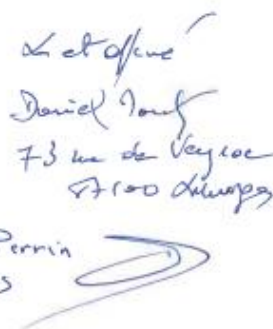 Lu et approuvé
Daniel
73 rue de Veyrac
87100 Limoges
Perrin